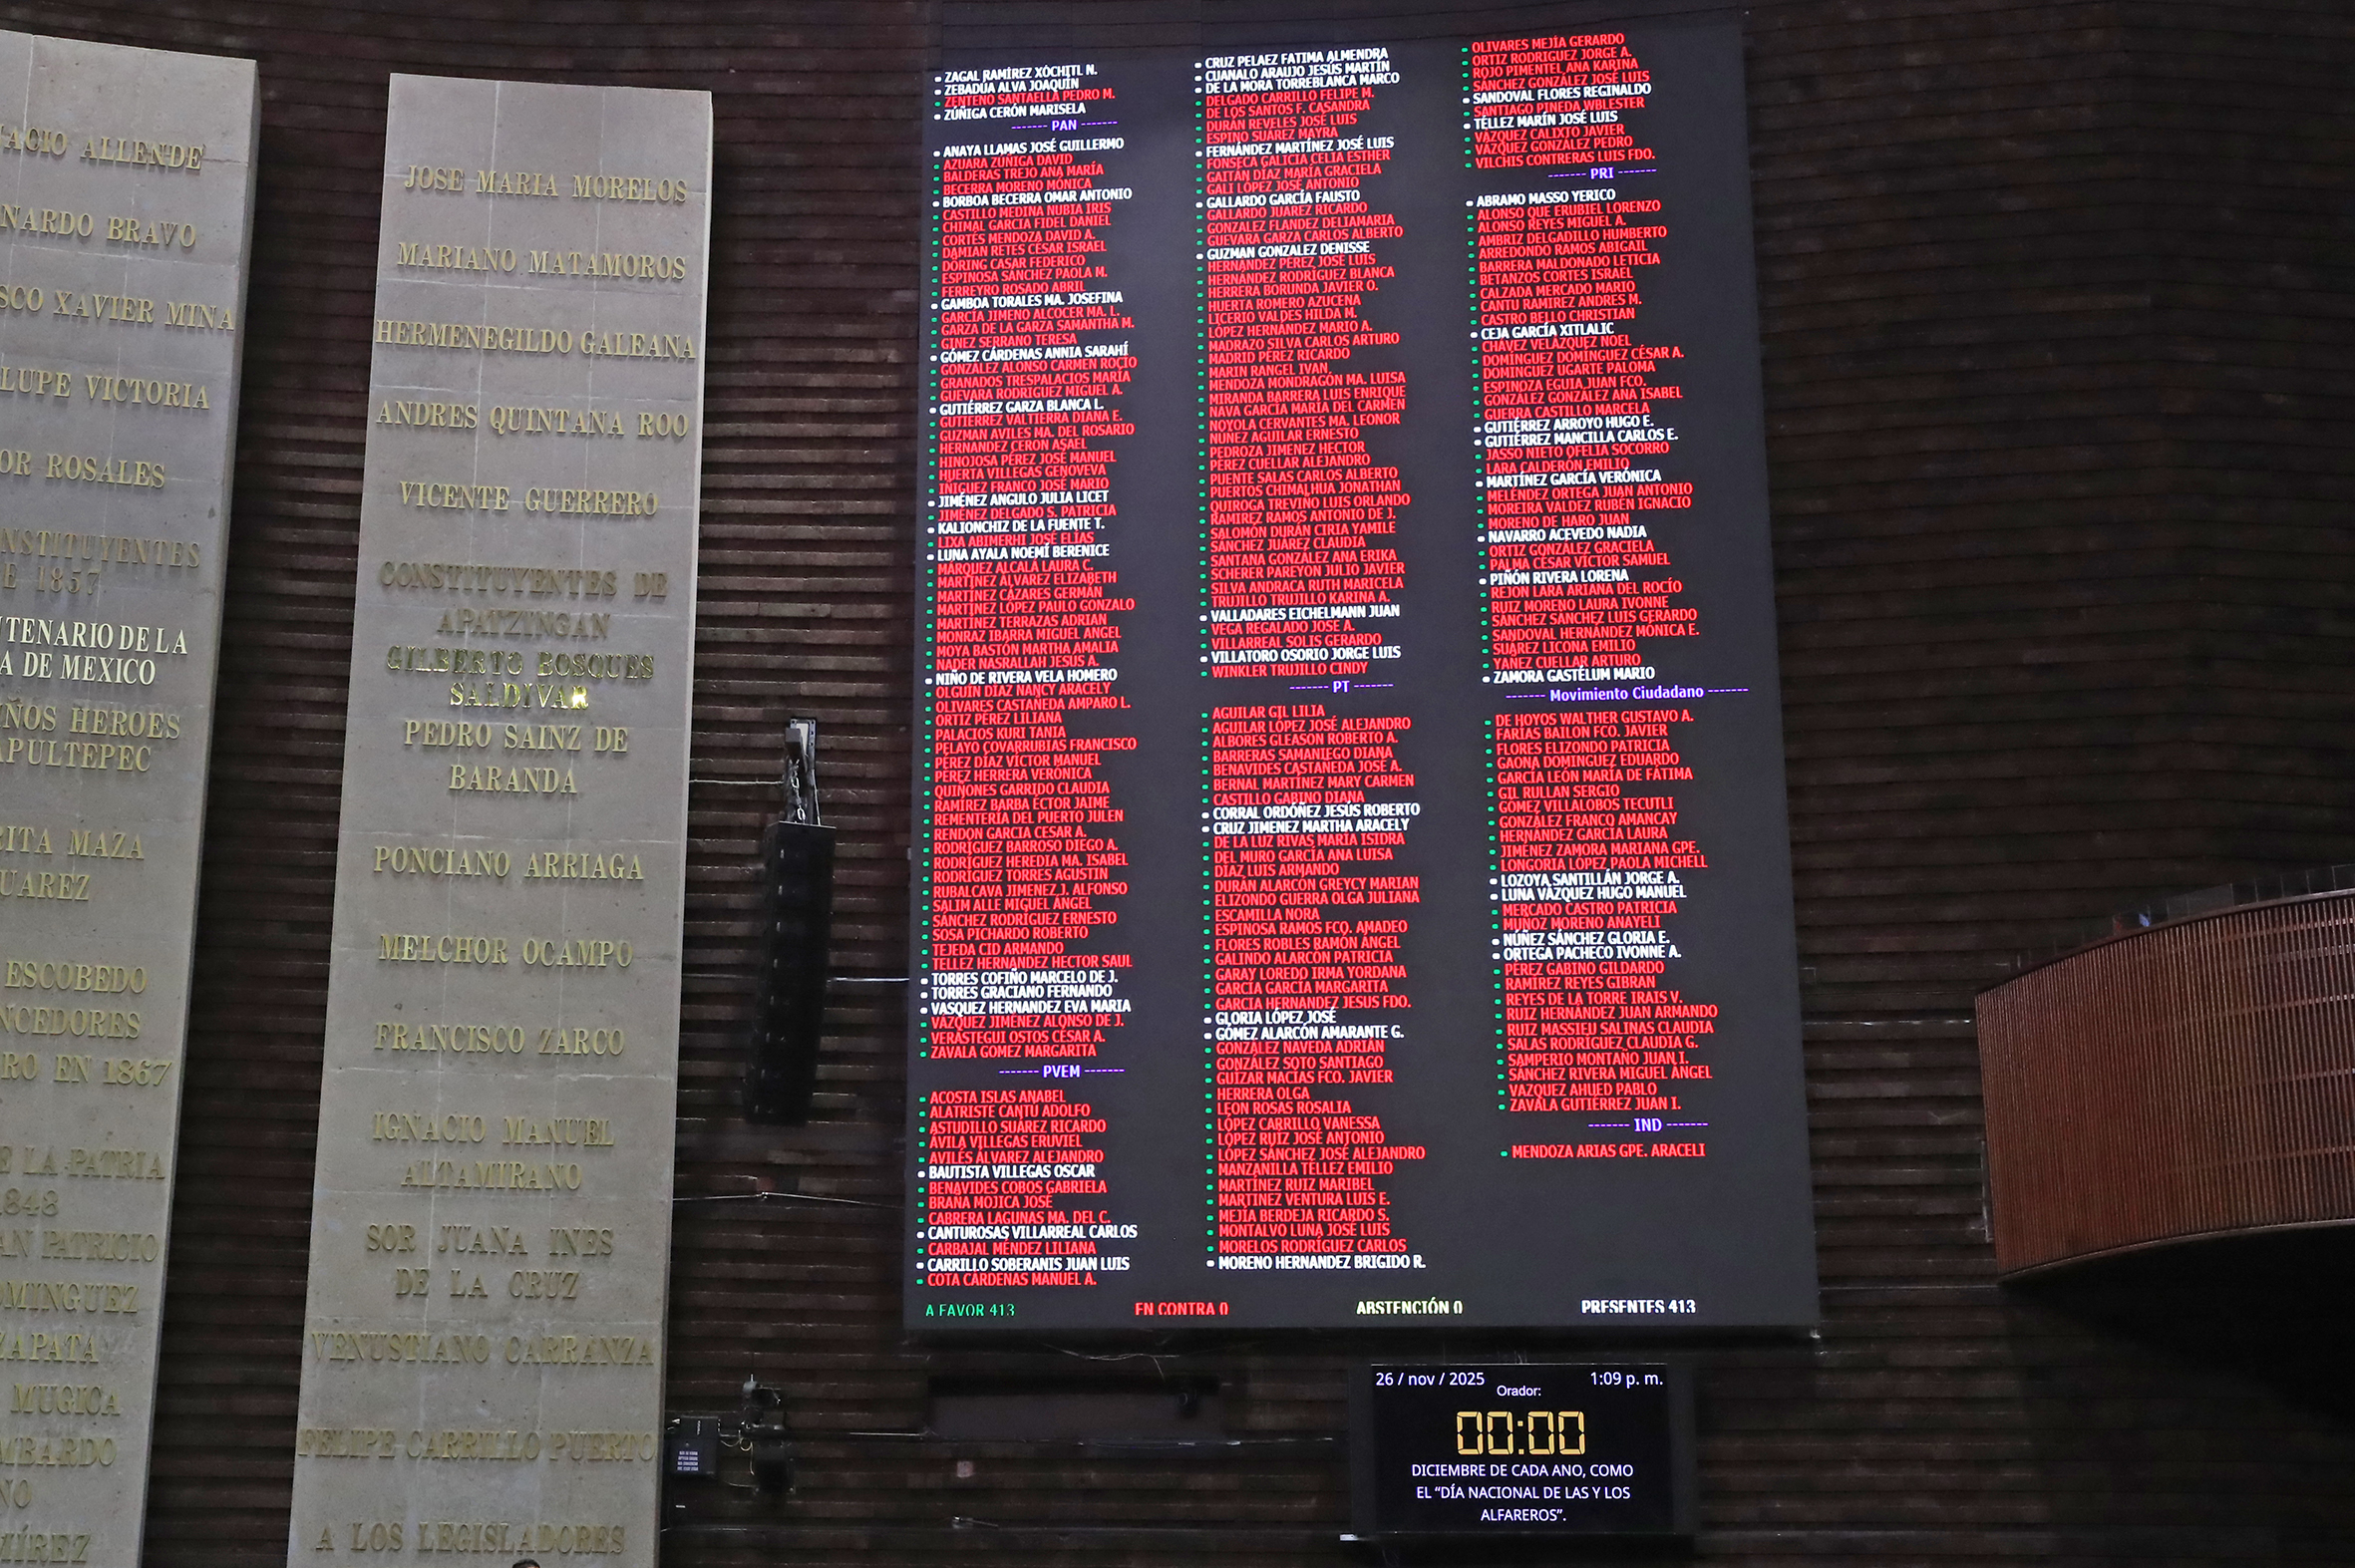 ACIO ALLENDE
NARDO BRAVO
SCO XAVIER MINA
LUPE VICTORIA
OR ROSALES
NSTITUYENTES
E 1857
TENARIO DE LA
A DE MEXICO
ÑOS HEROES
APULTEPEC
RITA MAZA
UAREZ
ESCOBEDO
NCEDORES
RO EN 1867
E LA PATRIA
1848
AN PATRICIO
OMINGUEZ
ZAPATA
MUGICA
MBARDO
NO
MÍREZ
JOSE MARIA MORELOS
MARIANO MATAMOROS
HERMENEGILDO GALEANA
ANDRES QUINTANA ROO
VICENTE GUERRERO
CONSTITUYENTES DE
APATZINGAN
GILBERTO BOSQUES
SALDIVAR
PEDRO SAINZ DE
BARANDA
PONCIANO ARRIAGA
MELCHOR OCAMPO
FRANCISCO ZARCO
IGNACIO MANUEL
ALTAMIRANO
SOR JUANA INES
DE LA CRUZ
VENUSTIANO CARRANZA
FELIPE CARRILLO PUERTO
A LOS LEGISLADORES
ZAGAL RAMÍREZ XÓCHITL N.
ZEBADÚA ALVA JOAQUÍN
ZENTENO SANTAELLA PEDRO M.
ZÚÑIGA CERÓN MARISELA
------- PAN -------
ANAYA LLAMAS JOSÉ GUILLERMO
AZUARA ZÚÑIGA DAVID
BALDERAS TREJO ANA MARÍA
BECERRA MORENO MÓNICA
BORBOA BECERRA OMAR ANTONIO
CASTILLO MEDINA NUBIA IRIS
CHIMAL GARCÍA FIDEL DANIEL
CORTÉS MENDOZA DAVID A.
DAMIAN RETES CÉSAR ISRAEL
DÖRING CASAR FEDERICO
ESPINOSA SÁNCHEZ PAOLA M.
FERREYRO ROSADO ABRIL
GAMBOA TORALES MA. JOSEFINA
GARCÍA JIMENO ALCOCER MA. L.
GARZA DE LA GARZA SAMANTHA M.
GINEZ SERRANO TERESA
GÓMEZ CÁRDENAS ANNIA SARAHÍ
GONZÁLEZ ALONSO CARMEN ROCÍO
GRANADOS TRESPALACIOS MARÍA
GUEVARA RODRÍGUEZ MIGUEL A.
GUTIÉRREZ GARZA BLANCA L.
GUTIERREZ VALTIERRA DIANA E.
GUZMAN AVILES MA. DEL ROSARIO
HERNANDEZ CERON ASAEL
HINOJOSA PÉREZ JOSÉ MANUEL
HUERTA VILLEGAS GENOVEVA
IÑIGUEZ FRANCO JOSÉ MARIO
JIMÉNEZ ANGULO JULIA LICET
JIMÉNEZ DELGADO S. PATRICIA
KALIONCHIZ DE LA FUENTE T.
LIXA ABIMERHI JOSÉ ELÍAS
LUNA AYALA NOEMÍ BERENICE
MÁRQUEZ ALCALÁ LAURA C.
MARTÍNEZ ÁLVAREZ ELIZABETH
MARTÍNEZ CÁZARES GERMÁN
MARTÍNEZ LÓPEZ PAULO GONZALO
MARTÍNEZ TERRAZAS ADRIAN
MONRAZ IBARRA MIGUEL ANGEL
MOYA BASTÓN MARTHA AMALIA
NADER NASRALLAH JESÚS A.
NIÑO DE RIVERA VELA HOMERO
OLGUÍN DÍAZ NANCY ARACELY
OLIVARES CASTAÑEDA AMPARO L.
ORTIZ PÉREZ LILIANA
PALACIOS KURI TANIA
PELAYO COVARRUBIAS FRANCISCO
PÉREZ DÍAZ VÍCTOR MANUEL
PÉREZ HERRERA VERÓNICA
QUIÑONES GARRIDO CLAUDIA
RAMÍREZ BARBA ÉCTOR JAIME
REMENTERÍA DEL PUERTO JULEN
RENDON GARCIA CESAR A.
RODRÍGUEZ BARROSO DIEGO A.
RODRÍGUEZ HEREDIA MA. ISABEL
RODRÍGUEZ TORRES AGUSTIN
RUBALCAVA JIMENEZ J. ALFONSO
SALIM ALLE MIGUEL ÁNGEL
SÁNCHEZ RODRÍGUEZ ERNESTO
SOSA PICHARDO ROBERTO
TEJEDA CID ARMANDO
TELLEZ HERNANDEZ HECTOR SAUL
TORRES COFIÑO MARCELO DE J.
TORRES GRACIANO FERNANDO
VASQUEZ HERNANDEZ EVA MARIA
VÁZQUEZ JIMÉNEZ ALONSO DE J.
VERÁSTEGUI OSTOS CÉSAR A.
ZAVALA GOMEZ MARGARITA
------- PVEM -------
ACOSTA ISLAS ANABEL
ALATRISTE CANTÚ ADOLFO
ASTUDILLO SUÁREZ RICARDO
ÁVILA VILLEGAS ERUVIEL
AVILÉS ÁLVAREZ ALEJANDRO
BAUTISTA VILLEGAS OSCAR
BENAVIDES COBOS GABRIELA
BRAÑA MOJICA JOSÉ
CABRERA LAGUNAS MA. DEL C.
CANTUROSAS VILLARREAL CARLOS
CARBAJAL MÉNDEZ LILIANA
CARRILLO SOBERANIS JUAN LUIS
COTA CÁRDENAS MANUEL A.
CRUZ PELAEZ FATIMA ALMENDRA
CUANALO ARAUJO JESÚS MARTÍN
DE LA MORA TORREBLANCA MARCO
DELGADO CARRILLO FELIPE M.
DE LOS SANTOS F. CASANDRA
DURÁN REVELES JOSÉ LUIS
ESPINO SUÁREZ MAYRA
FERNÁNDEZ MARTÍNEZ JOSÉ LUIS
FONSECA GALICIA CELIA ESTHER
GAITÁN DÍAZ MARÍA GRACIELA
GALI LÓPEZ JOSÉ ANTONIO
GALLARDO GARCÍA FAUSTO
GALLARDO JUÁREZ RICARDO
GONZALEZ FLANDEZ DELIAMARIA
GUEVARA GARZA CARLOS ALBERTO
GUZMAN GONZALEZ DENISSE
HERNÁNDEZ PÉREZ JOSÉ LUIS
HERNÁNDEZ RODRÍGUEZ BLANCA
HERRERA BORUNDA JAVIER O.
HUERTA ROMERO AZUCENA
LICERIO VALDES HILDA M.
LÓPEZ HERNÁNDEZ MARIO A.
MADRAZO SILVA CARLOS ARTURO
MADRID PÉREZ RICARDO
MARIN RANGEL IVAN
MENDOZA MONDRAGÓN MA. LUISA
MIRANDA BARRERA LUIS ENRIQUE
NAVA GARCÍA MARÍA DEL CARMEN
NOYOLA CERVANTES MA. LEONOR
NÚÑEZ AGUILAR ERNESTO
PEDROZA JIMENEZ HECTOR
PÉREZ CUELLAR ALEJANDRO
PUENTE SALAS CARLOS ALBERTO
PUERTOS CHIMALHUA JONATHAN
QUIROGA TREVIÑO LUIS ORLANDO
RAMIREZ RAMOS ANTONIO DE J.
SALOMÓN DURÁN CIRIA YAMILE
SÁNCHEZ JUÁREZ CLAUDIA
SANTANA GONZÁLEZ ANA ERIKA
SCHERER PAREYON JULIO JAVIER
SILVA ANDRACA RUTH MARICELA
TRUJILLO TRUJILLO KARINA A.
VALLADARES EICHELMANN JUAN
VEGA REGALADO JOSE A.
VILLARREAL SOLIS GERARDO
VILLATORO OSORIO JORGE LUIS
WINKLER TRUJILLO CINDY
------- PT -------
AGUILAR GIL LILIA
AGUILAR LÓPEZ JOSÉ ALEJANDRO
ALBORES GLEASON ROBERTO A.
BARRERAS SAMANIEGO DIANA
BENAVIDES CASTAÑEDA JOSE A.
BERNAL MARTÍNEZ MARY CARMEN
CASTILLO GABINO DIANA
CORRAL ORDÓÑEZ JESÚS ROBERTO
CRUZ JIMENEZ MARTHA ARACELY
DE LA LUZ RIVAS MARÍA ISIDRA
DEL MURO GARCÍA ANA LUISA
DÍAZ LUIS ARMANDO
DURÁN ALARCÓN GREYCY MARIAN
ELIZONDO GUERRA OLGA JULIANA
ESCAMILLA NORA
ESPINOSA RAMOS FCO. AMADEO
FLORES ROBLES RAMÓN ÁNGEL
GALINDO ALARCÓN PATRICIA
GARAY LOREDO IRMA YORDANA
GARCÍA GARCÍA MARGARITA
GARCIA HERNANDEZ JESUS FDO.
GLORIA LÓPEZ JOSÉ
GÓMEZ ALARCÓN AMARANTE G.
GONZÁLEZ NAVEDA ADRIÁN
GONZÁLEZ SOTO SANTIAGO
GUÍZAR MACÍAS FCO. JAVIER
HERRERA OLGA
LEÓN ROSAS ROSALIA
LÓPEZ CARRILLO VANESSA
LÓPEZ RUIZ JOSÉ ANTONIO
LÓPEZ SÁNCHEZ JOSÉ ALEJANDRO
MANZANILLA TÉLLEZ EMILIO
MARTÍNEZ RUIZ MARIBEL
MARTINEZ VENTURA LUIS E.
MEJÍA BERDEJA RICARDO S.
MONTALVO LUNA JOSÉ LUIS
MORELOS RODRÍGUEZ CARLOS
MORENO HERNANDEZ BRIGIDO R.
OLIVARES MEJÍA GERARDO
ORTIZ RODRIGUEZ JORGE A.
ROJO PIMENTEL ANA KARINA
SÁNCHEZ GONZÁLEZ JOSÉ LUIS
SANDOVAL FLORES REGINALDO
SANTIAGO PINEDA WBLESTER
TÉLLEZ MARÍN JOSÉ LUIS
VÁZQUEZ CALIXTO JAVIER
VÁZQUEZ GONZÁLEZ PEDRO
VILCHIS CONTRERAS LUIS FDO.
------- PRI -------
ABRAMO MASSO YERICO
ALONSO QUE ERUBIEL LORENZO
ALONSO REYES MIGUEL A.
AMBRIZ DELGADILLO HUMBERTO
ARREDONDO RAMOS ABIGAIL
BARRERA MALDONADO LETICIA
BETANZOS CORTES ISRAEL
CALZADA MERCADO MARIO
CANTU RAMIREZ ANDRES M.
CASTRO BELLO CHRISTIAN
CEJA GARCÍA XITLALIC
CHAVEZ VELÁZQUEZ NOEL
DOMÍNGUEZ DOMÍNGUEZ CÉSAR A.
DOMINGUEZ UGARTE PALOMA
ESPINOZA EGUIA JUAN FCO.
GONZÁLEZ GONZÁLEZ ANA ISABEL
GUERRA CASTILLO MARCELA
GUTIÉRREZ ARROYO HUGO E.
GUTIÉRREZ MANCILLA CARLOS E.
JASSO NIETO OFELIA SOCORRO
LARA CALDERÓN EMILIO
MARTÍNEZ GARCÍA VERÓNICA
MELÉNDEZ ORTEGA JUAN ANTONIO
MOREIRA VALDEZ RUBÉN IGNACIO
MORENO DE HARO JUAN
NAVARRO ACEVEDO NADIA
ORTIZ GONZÁLEZ GRACIELA
PALMA CÉSAR VICTOR SAMUEL
PIÑÓN RIVERA LORENA
REJON LARA ARIANA DEL ROCÍO
RUIZ MORENO LAURA IVONNE
SÁNCHEZ SÁNCHEZ LUIS GERARDO
SANDOVAL HERNÁNDEZ MÓNICA E.
SUÁREZ LICONA EMILIO
YÁÑEZ CUELLAR ARTURO
ZAMORA GASTÉLUM MARIO
------- Movimiento Ciudadano -------
DE HOYOS WALTHER GUSTAVO A.
FARÍAS BAILON FCO. JAVIER
FLORES ELIZONDO PATRICIA
GAONA DOMINGUEZ EDUARDO
GARCÍA LEÓN MARÍA DE FÁTIMA
GIL RULLAN SERGIO
GÓMEZ VILLALOBOS TECUTLI
GONZÁLEZ FRANCO AMANCAY
HERNÁNDEZ GARCÍA LAURA
JIMÉNEZ ZAMORA MARIANA GPE.
LONGORIA LÓPEZ PAOLA MICHELL
LOZOYA SANTILLÁN JORGE A.
LUNA VÁZQUEZ HUGO MANUEL
MERCADO CASTRO PATRICIA
MUÑOZ MORENO ANAYELI
NÚÑEZ SÁNCHEZ GLORIA E.
ORTEGA PACHECO IVONNE A.
PÉREZ GABINO GILDARDO
RAMÍREZ REYES GIBRAN
REYES DE LA TORRE IRAIS V.
RUIZ HERNÁNDEZ JUAN ARMANDO
RUIZ MASSIEU SALINAS CLAUDIA
SALAS RODRÍGUEZ CLAUDIA G.
SAMPERIO MONTAÑO JUAN I.
SÁNCHEZ RIVERA MIGUEL ÁNGEL
VÁZQUEZ AHUED PABLO
ZAVALA GUTIÉRREZ JUAN I.
------- IND -------
MENDOZA ARIAS GPE. ARACELI
A FAVOR 413 EN CONTRA 0 ABSTENCIÓN 0 PRESENTES 413
26 / nov / 2025 1:09 p. m.
Orador:
00:00
DICIEMBRE DE CADA ANO, COMO
EL “DÍA NACIONAL DE LAS Y LOS
ALFAREROS”.